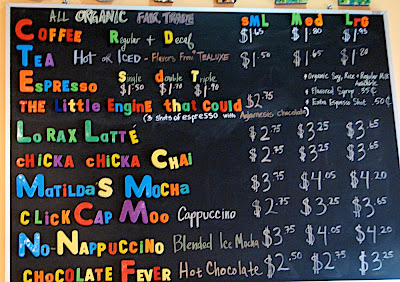 ALL ORGANIC FAIR TRADE SML Med LrG
COFFEE Regular + Decaf $1.65 $1.80 $1.95
TEA Hot or ICED - Flavors From "TEALUXE" $1.50 $1.65 $1.80
ESPRESSO Single $1.50 double $1.70 Triple $1.90
• Organic Soy, Rice + Regular Milk Available
• Flavored Syrup .35¢
• Extra Espresso Shot .50¢
THE Little Engine that Could $2.75
(3 shots of espresso with Chocolate)
LORAX LATTÉ $2.75 $3.25 $3.65
cHiCKA cHiCKA CHAI $2.75 $3.25 $3.65
MATILDAS MOCHA $3.75 $4.05 $4.20
CLiCK CAP MOO Cappuccino $2.75 $3.25 $3.65
NO-NAPPUCCINO Blended Ice Mocha $3.75 $4.05 $4.20
CHOCOLATE FEVER Hot Chocolate $2.50 $2.75 $3.25